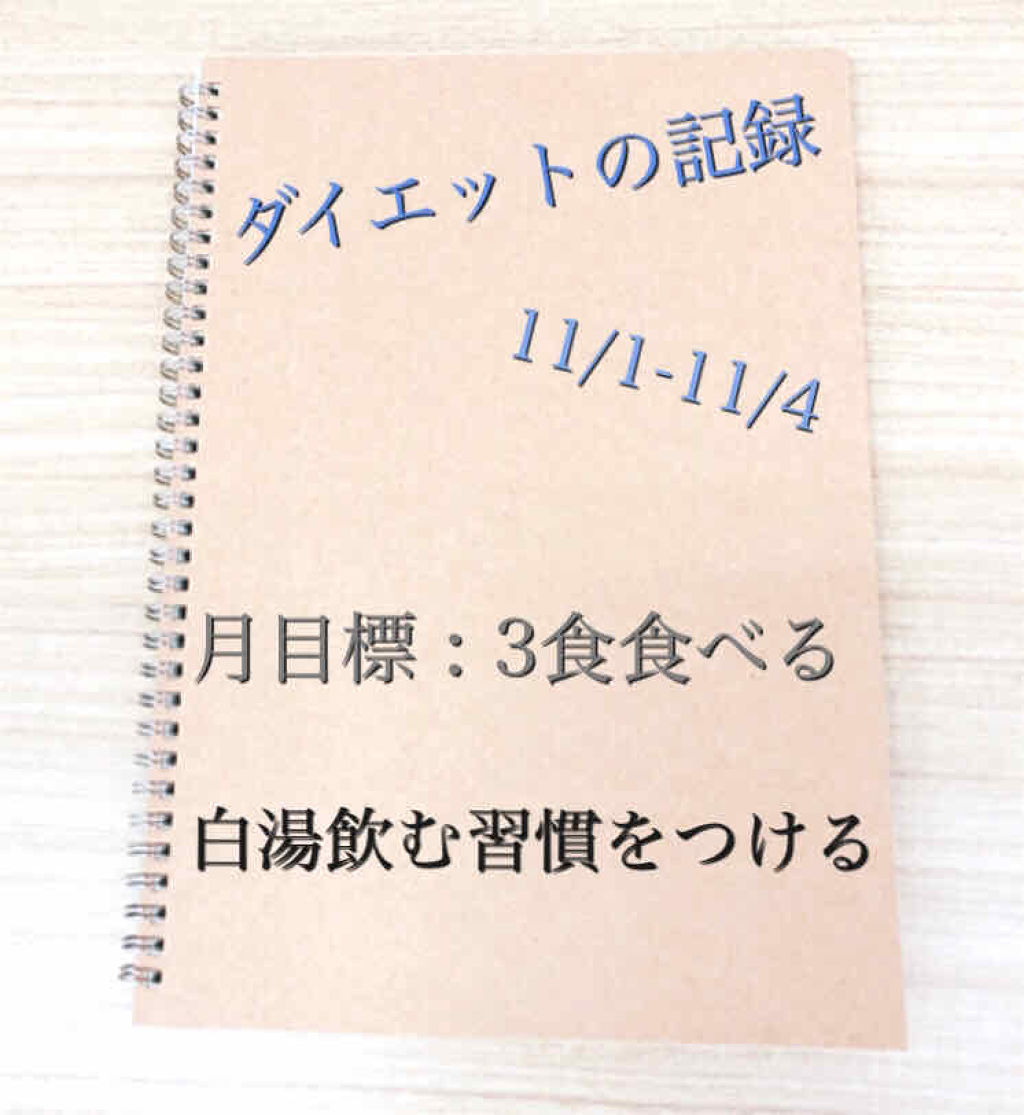 ダイエットの記録
11/1-11/4
月目標：3食食べる
白湯飲む習慣をつける